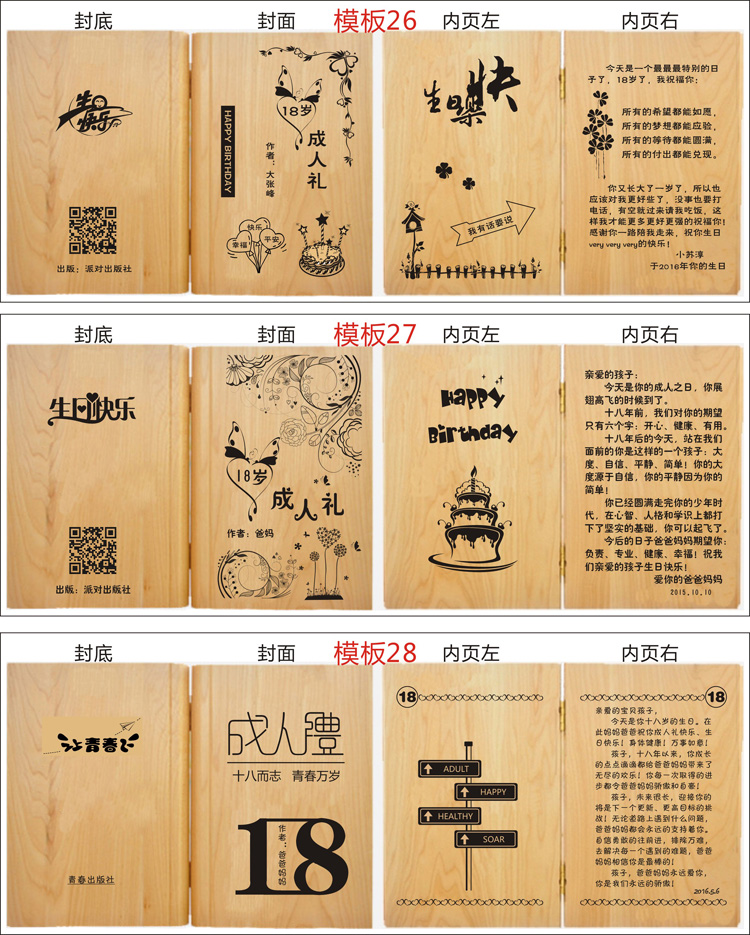 封底
封面
模板26
内页左
内页右
生日快乐
出版：派对出版社
18岁
成人礼
HAPPY BIRTHDAY
作者：大张峰
快乐
幸福
平安
生日快樂
我有话要说
今天是一个最最最特别的日
子了，18岁了，我祝福你：
所有的希望都能如愿，
所有的梦想都能应验，
所有的等待都能圆满，
所有的付出都能兑现。
你又长大了一岁了，所以也
应该对我更好些了，没事也要打
电话，有空就过来请我吃饭，这
样我才能更多更好更强的祝福你!
感谢你一路陪我走来，祝你生日
very very very的快乐!
小苏淳
于2016年你的生日
封底
封面
模板27
内页左
内页右
生日快乐
出版：派对出版社
18岁
成人礼
作者：爸妈
Happy
Birthday
亲爱的孩子：
今天是你的成人之日，你展
翅高飞的时候到了。
十八年前，我们对你的期望
只有六个字：开心、健康、有用。
十八年后的今天，站在我们
面前的你是这样的一个孩子：大
度、自信、平静、简单！你的大
度源于自信，你的平静因为你的
简单！
你已经圆满走完你的少年时
代，在心智、人格和学识上都打
下了坚实的基础，你可以起飞了。
今后的日子爸爸妈妈期望你：
负责、专业、健康、幸福！祝我
们亲爱的孩子生日快乐！
爱你的爸爸妈妈
2015.10.10
封底
封面
模板28
内页左
内页右
青春
青春出版社
成人禮
十八而志 青春万岁
18
作者：爸爸妈妈
18
ADULT
HAPPY
HEALTHY
SOAR
18
亲爱的宝贝孩子，
今天是你十八岁的生日。在
此妈妈爸爸祝你成人礼快乐、生
日快乐！身体健康！万事如意！
孩子，十八年以来，你成长
的点点滴滴都给爸爸妈妈带来了
无尽的欢乐！你每一次取得的进
步都令爸爸妈妈骄傲和自豪！
孩子，未来很长，迎接你的
将是下一个更新、更高目标的挑
战！无论道路上遇到什么问题，
爸爸妈妈都会永远的支持着你。
自信勇敢的往前进，排除万难，
去解决每一个遇到的难题，爸爸
妈妈相信你是最棒的！
孩子，爸爸妈妈永远爱你，
你是我们永远的骄傲！
2016.5.6